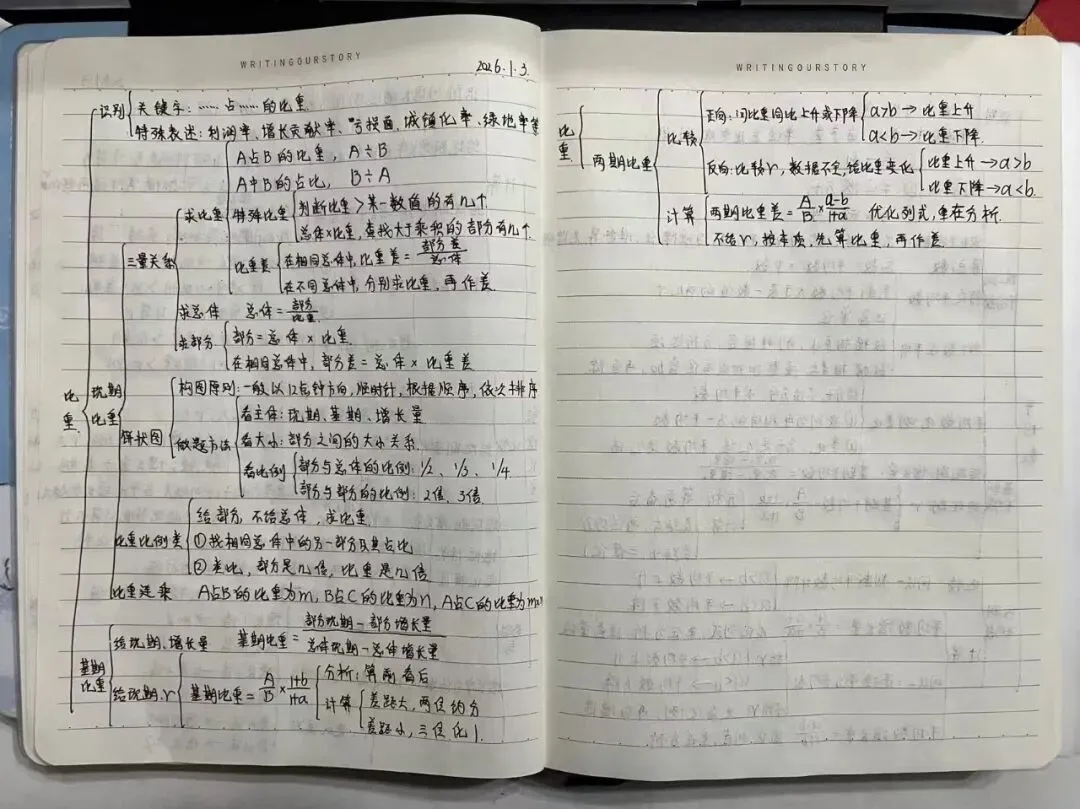 WRITINGOURSTORY
2026.1.3.
比重
现期比重
识别
关键字：……占……的比重
特殊表述：利润率、增长贡献率、亏损面、城镇化率、绿地率等
三量关系
求比重
A占B的比重，A÷B
A中B的占比，B÷A
特殊比重
判断比重＞某一数值的有几个
总体×比重，查找大于乘积的部分有几个
比重差
在相同总体中，比重差=部分差/总体
在不同总体中，分别求比重，再作差
求总体 总体=部分/比重
求部分
部分=总体×比重
在相同总体中，部分差=总体×比重差
饼状图
构图原则：一般以12点钟方向，顺时针，根据顺序，依次排序
做题方法
看主体：现期、基期、增长量
看大小：部分之间的大小关系
看比例
部分与总体的比例：1/2、1/3、1/4
部分与部分的比例：2倍、3倍
比重比例类
给部分，不给总体，求比重
①找相同总体中的另一部分及其占比
②类比，部分是几倍，比重是几倍
比重连乘 A占B的比重为m，B占C的比重为n，A占C的比重为m×n
基期比重
给现期、增长量 基期比重=部分现期－部分增长量/总体现期－总体增长量
给现期、r 基期比重=A/B×1+b/1+a
分析：算前看后
计算
差距大，两位约分
差距小，三位化1
WRITINGOURSTORY
比重
两期比重
比较
正向：问比重同比上升或下降
a>b→比重上升
a<b→比重下降.
反向：比较r，数据不全，给比重变化
比重上升→a>b
比重下降→a<b.
计算
两期比重差=A/B×a-b/1+a 优化列式，重在分析.
不给r，按本质，先算比重，再作差